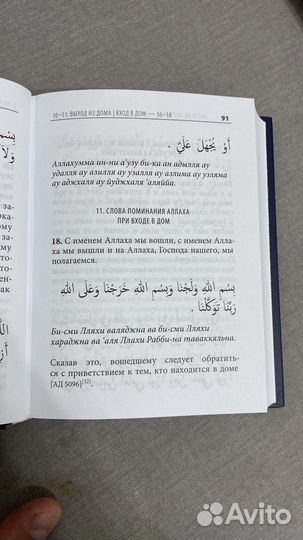 10–11: ВЫХОД ИЗ ДОМА | ВХОД В ДОМ — 16–18
91
أَوْ يُجْهَلَ عَلَيَّ .
Аллахумма ин-ни а'узу би-ка ан адылля ау
удалля ау азилля ау узалля ау азлима ау узляма
ау аджхаля ау йуджхаля 'аляййа.
11. СЛОВА ПОМИНАНИЯ АЛЛАХА
ПРИ ВХОДЕ В ДОМ
18. С именем Аллаха мы вошли, с именем Алла-
ха мы вышли и на Аллаха, Господа нашего, мы
полагаемся.
بِسْمِ اللهِ وَلَجْنَا وَبِسْمِ اللهِ خَرَجْنَا وَعَلَى اللهِ
رَبِّنَا تَوَكَّلْنَا .
Би-сми Лляхи валяджна ва би-сми Лляхи
хараджна ва 'аля Ллахи Рабби-на таваккяльна.
Сказав это, вошедшему следует обратить-
ся с приветствием к тем, кто находится в доме
[АД 5096][32].
Avito